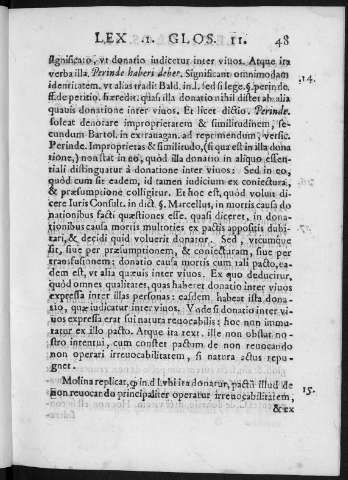 LEX. 1. GLOS. 11. 48
significatō, vt donatio iudicetur inter viuos. Atque ita
verba illa. Perinde haberi debet. Significant omnimodam 14.
identitatem, vt alias tradit Bald. in l. sed si lege. §. perinde.
ff. de peritio. hæredit. quasi illa donatio nihil distet ab alia
quauis donatione inter viuos. Et licet dictio. Perinde.
soleat denotare improprietatem & similitudinem, se-
cundum Bartol. in extrauagan. ad reprimendum, versic.
Perinde. Improprietas & similitudo, (si qua est in illa dona
tione,) non stat in eo, quòd illa donatio in aliquo essen-
tiali distinguatur à donatione inter viuos: Sed in eo,
quòd cum sit eadem, id tamen iudicium ex coniectura,
& præsumptione colligitur. Et hoc est, quòd voluit di-
cere Iuris Consult. in dict. §. Marcellus, in mortis causa do
nationibus facti quæstiones esse. quasi diceret, in dona-
tionibus causa mortis multoties ex pactis appositis dubi-
tari, & decidi quid voluerit donator. Sed, vtcumque
sit, siue per præsumptionem, & coniecturam, siue per
transfusionem; donatio causa mortis cum tali pacto, ea-
dem est, vt alia quæuis inter viuos. Ex quo deducitur,
quòd omnes qualitates, quas haberet donatio inter viuos
expressa inter illas personas: easdem habeat ista dona-
tio, quæ iudicatur inter viuos. Vnde si donatio inter vi-
uos expressa erat sui natura reuocabilis: hoc non immu-
tatur ex illo pacto. Atque ita text. ille non obstat no-
stro intentui, cum constet pactum de non reuocando
non operari irreuocabilitatem, si natura actus repu-
gnet.
Molina replicat, q̃ in d. l. vbi ita donatur, pactū illud de 15.
non reuocando principaliter operatur irreuocabilitatem,
& ex